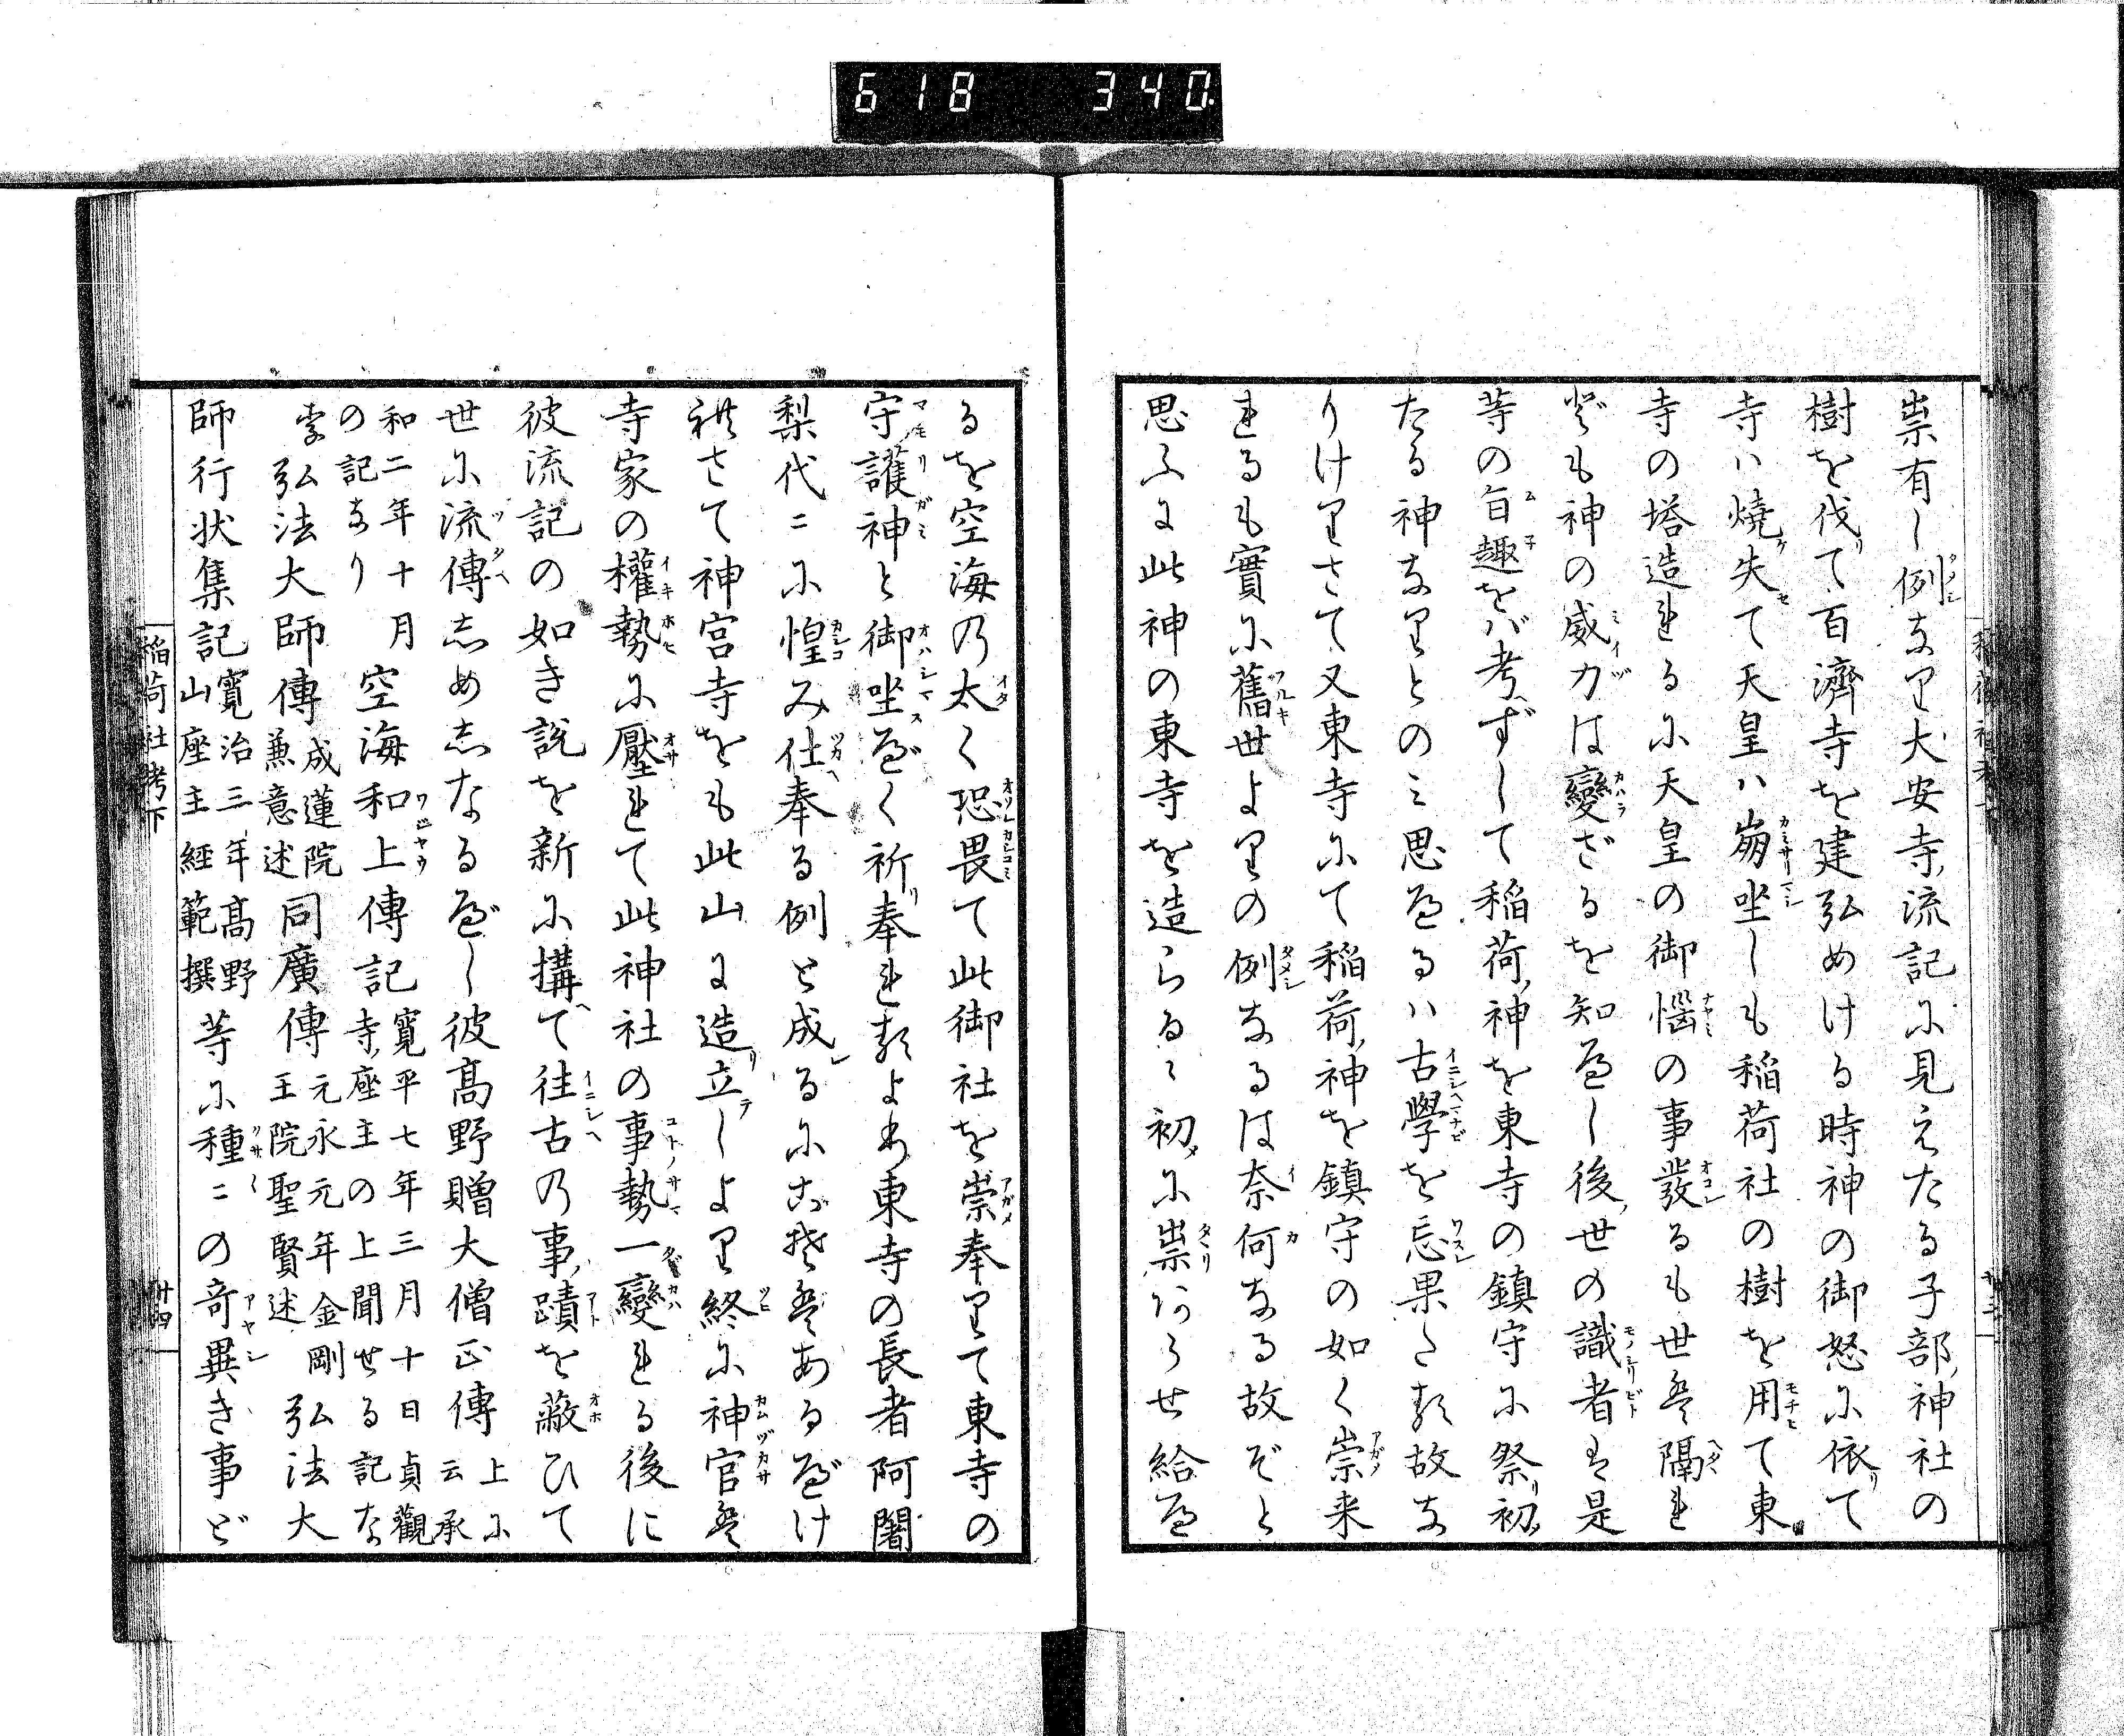 618 340
祟有し例なり大安寺流記に見えたる子部神社の
樹を伐て百濟寺を建弘めける時神の御怒に依て
寺ハ燒失て天皇ハ崩坐しも稲荷社の樹を用て東
寺の塔造れるに天皇の御惱の事發るも世を隔れ
ども神の威力は變ざるを知べし後世の識者も是
等の旨趣をバ考ずして稲荷神を東寺の鎮守に祭初
たる神なりとのミ思へるハ古學を忘果たる故な
りけりさて又東寺にて稲荷神を鎮守の如く崇来
れるも實に舊世よりの例なるは奈何なる故ぞと
思ふに此神の東寺を造らるゝ初に祟りらせ給へ
るを空海の太く恐畏て此御社を崇奉りて東寺の
守護神と御坐べく祈奉れるより東寺の長者阿闍
梨代ニに惶み仕奉る例と成るにこそはあるべけ
れさて神宮寺をも此山に造立しより終に神官は
寺家の權勢に壓れて此神社の事勢一變れる後に
彼流記の如き説を新に搆て往古の事蹟を蔽ひて
世に流傳しめしなるべし彼高野贈大僧正傳 上に云承
和二年十月の記なり 空海和上傳記 寛平七年三月十日貞觀寺座主の上聞せる記な
り 弘法大師傳 成蓮院兼意述 同廣傳 元永元年金剛王院聖賢述 弘法大
師行状集記 寛治三年高野山座主經範撰 等に種ニの奇異き事ど
稲荷社考下
廿四